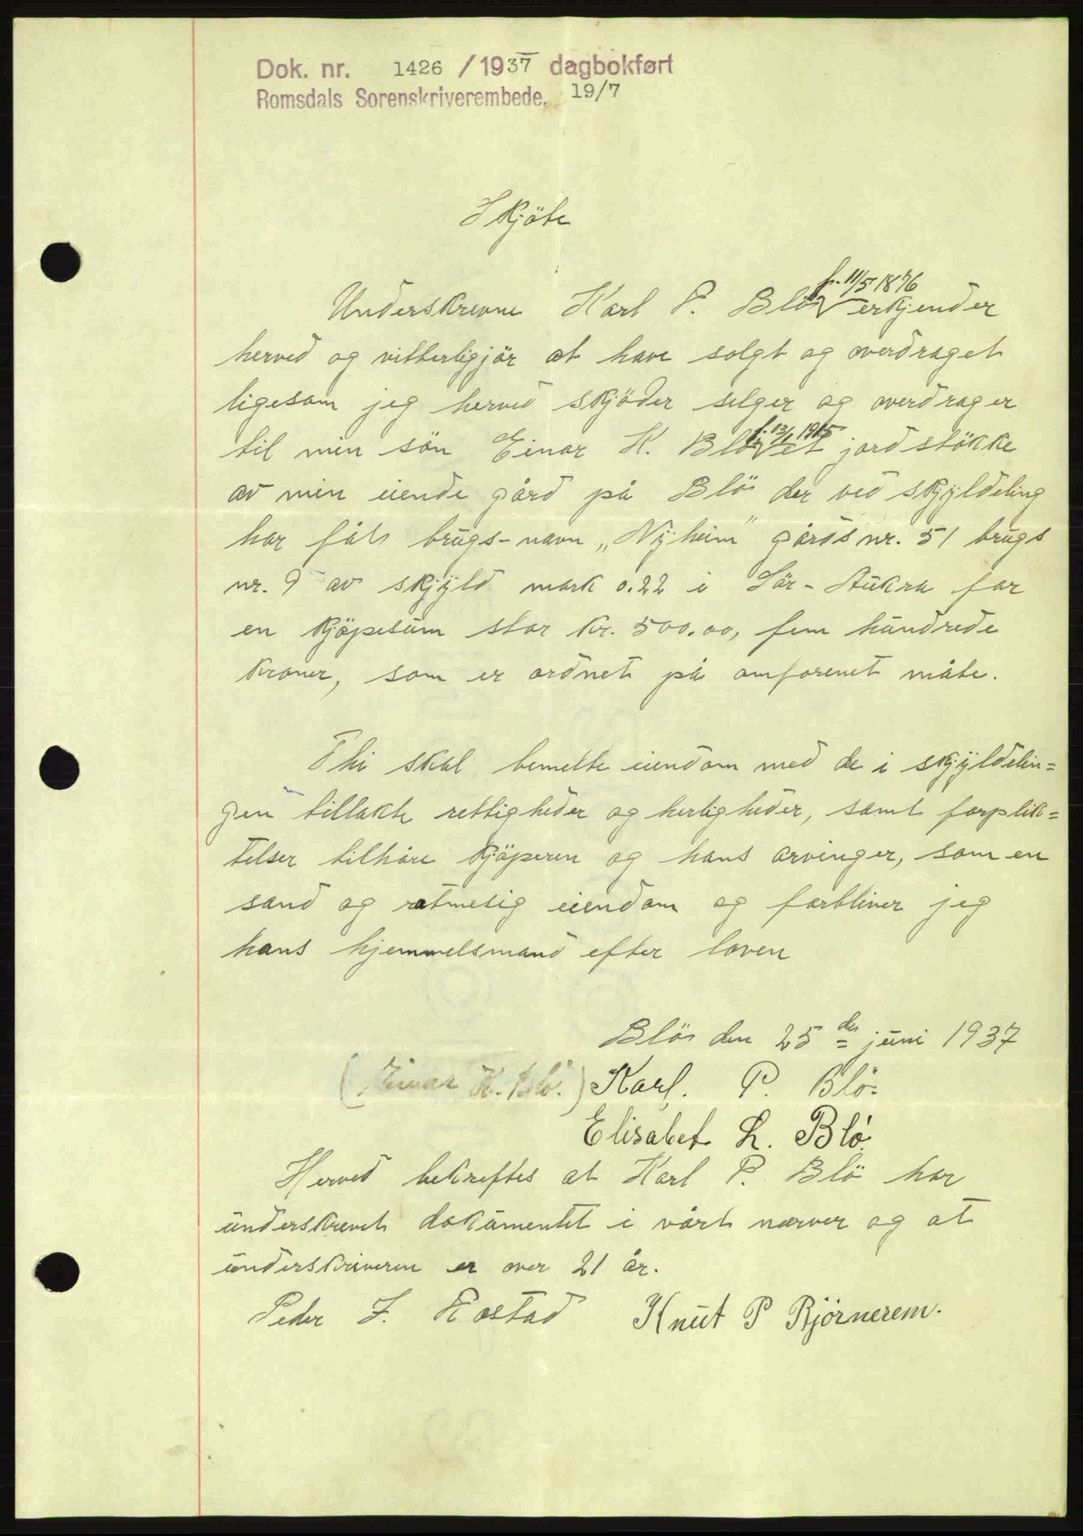 Dok. nr. 1426 / 1937 dagbokført
Romsdals Sorenskriverembede, 19/7
Skjöte
f. 11/5 1876
Underskrevne Karl P. Blö erkjender
herved og vitterligjör at have solgt og overdraget
ligesom jeg herved skjöder selger og overdrager
f. 13/1 1915
til min sön Einar K. Blö et jordstökke
av min eiende gård på Blö der ved skjyldeling
har fåt brugs-navn „Nyheim" gårds nr. 51 brugs
nr. 9 av skjyld mark 0.22 i Sör-Aukra for
en kjöpesum stor kr. 500.00, fem hundrede
kroner, som er ordnet på omforenet måte.
Thi skal bemelte eiendom med de i skjyldelin=
gen tillakte rettigheder og herligheder, samt forplik=
telser tilhöre kjöperen og hans arvinger, som en
sand og retmesig eiendom og forbliver jeg
hans hjemmelsmand efter loven
Blö den 25 de juni 1937
(Einar K. Blö.) Karl. P. Blö.
Elisabet L. Blö
Herved bekreftes at Karl P. Blö har
underskrevet dokumentet i vårt nærver og at
underskriveren er over 21 år.
Peder J. Rostad Knut P Björnerem.